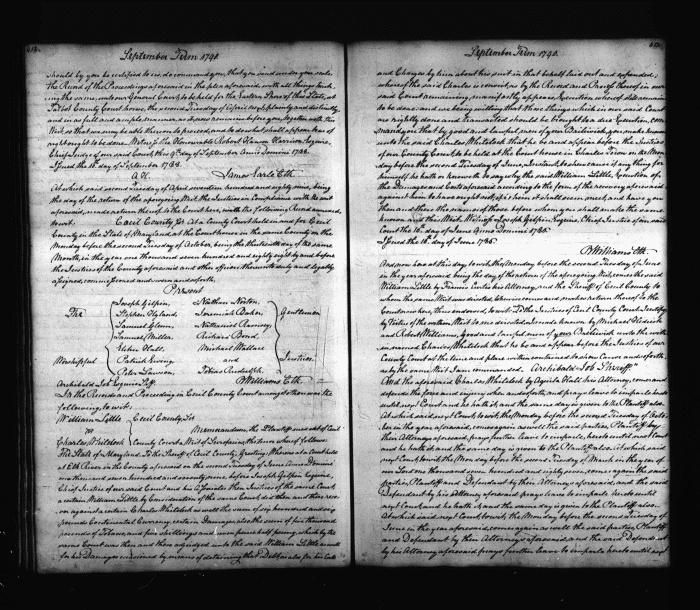 September Term 1790.
should by you be certified to us do command you, that you send under your seal
The Record of the Proceedings aforesaid in the plea aforesaid, with all things touch-
ing the same, unto our General Court, to be held for the Eastern Shore of this State, at
Talbot County Court House, the second Tuesday of April next, plainly and distinctly,
and in as full and ample manner, as it now remains before you, together with this
Writ, so that we may be able thereon to proceed, and to do what shall appear to us of
right ought to be done. Witness The Honourable Robert Hanson Harrison Esquire,
Chief Judge of our said Court the 9th day of September Anno Domini 1788.
Issued the 18th day of September 1788.
James Earle Clk.
At which said second Tuesday of April seventeen hundred and eighty nine, being
the day of the return of the aforegoing Writ, the Justices in Compliance with the writ
aforesaid, made return thereof to the Court here, with the following Record annexed,
to wit.
Cecil County Sct. At a County Court held in and for Cecil
County in the State of Maryland, at the Court house in the same County on the
Monday before the second Tuesday of October, being the thirteenth day of the same
Month, in the year one Thousand seven hundred and eighty eight by and before
the Justices of the County aforesaid and other officers thereunto duly and legally
assigned, commissioned and sworn and so forth.
Present
The
Joseph Gilpin, Nathan Norton,
Stephen Hyland, Jeremiah Baker,
Samuel Glenn, Nathaniel Ramsey,
Samuel Miller, Richard Bond,
Elihu Hall, Michael Wallace
Patrick Ewing and
Peter Lawson, Tobias Rudulph.
Gentlemen
Justices.
Worshipful
Archibald Job Esquire Sheff.
B Williams Clk.
In the Record and Proceedings in Cecil County Court among others was the
following, to wit.
William Little
vs
Charles Whitelock
Cecil County Sct
Memorandum, the Plaintiff sued out of Cecil
County Court a Writ of Scire facias, the tenor whereof follows
The State of Maryland To the Sheriff of Cecil County, Greeting. Whereas at a Court held
at Elk River in the County aforesaid on the second Tuesday of June Anno Domini
one thousand seven hundred and seventy nine, before Joseph Gilpin Esquire,
Chief Justice of our said Court and his Associates then Justices of the same Court
a certain William Little by Consideration of the same Court did then and there reco-
ver against a certain Charles Whitelock as well the sum of six hundred and six
pounds Continental Currency, certain Damages, also the sum of five thousand
pounds of Tobacco, and five shillings and seven pence half penny, which by the
same Court was then and there adjudged unto the said William Little as well
for his Damages sustained by means of detaining that Debt as also for his Costs
September Term 1790.
and Charges by him about his suit in that behalf laid out and expended,
whereof the said Charles is convict, as by the Record and Process thereof in our
said Court remaining, manifestly appears, Execution whereof still remains
to be done, and we being willing that those things which in our said Court
are rightly done and transacted should be brought to a due Execution, Com-
mand you that by good and lawful men of your Bailiwick you make known
unto the said Charles Whitelock that he be and appear before the Justices
of our County Court to be held at the Court house in Charles Town on the Mon-
day before the second Tuesday of June, Instant, to shew cause if any thing for
himself he hath or knoweth to say why the said William Little Execution of
the Damages and Costs aforesaid according to the form of the recovery aforesaid
against him to have ought not, if to him it shall seem meet, and have you
then and there the names of those before whom you shall make the same
known and this Writ. Witness Joseph Gilpin, Esquire, Chief Justice of our said
Court the 16th day of June Anno Domini 1786.
Issued the 16th day of June 1786.
B Williams Clk.
And now here at this day to wit the Monday before the second Tuesday of June
in the year aforesaid being the day of the return of the aforegoing Writ, comes the said
William Little by Francis Curtis his Attorney, and the Sheriff of Cecil County to
whom the same Writ was directed, likewise comes and makes return thereof to the
Court now here, thus endorsed, to wit. To the Justices of Cecil County Court I certify
by Virtue of the within Writ to me directed, I made known by Michael
and Robert Williams, Good and Lawful men of your Bailiwick unto the with-
in named Charles Whitelock that he be and appear before the Justices of our
County Court at the time and place within contained to shew Cause and so forth,
as by the same Writ I am commanded.
Archibald Job Sheriff
And the aforesaid Charles Whitelock by Aquila Hall his Attorney, comes and
defends the force and injury when and so forth, and prays leave to imparle hereto
until next Court and he hath it, and the same day is given to the Plaintiff also.
At which said next Court, to wit, the Monday before the second Tuesday of Octo-
ber in the year aforesaid, comes again as well the said parties, Plaintiff by
their Attorneys aforesaid, prays further leave to imparle, hereto until next Court
and he hath it, and the same day is given to the Plaintiff also. At which said
next Court, to wit, the Monday before the second Tuesday of March in the year of
our Lord one thousand seven hundred and eighty seven, comes again the said
parties, Plaintiff and Defendant by their Attorneys aforesaid, and the said
Defendant by his Attorney aforesaid prays leave to imparle hereto until
next Court and he hath it, and the same day is given to the Plaintiff also.
At which said next Court, to wit, the Monday before the second Tuesday of
June in the year aforesaid, comes again as well the said parties, Plaintiff
and Defendant by their Attorneys aforesaid, and the said Defendant
by his Attorney aforesaid prays further leave to imparle hereto until next